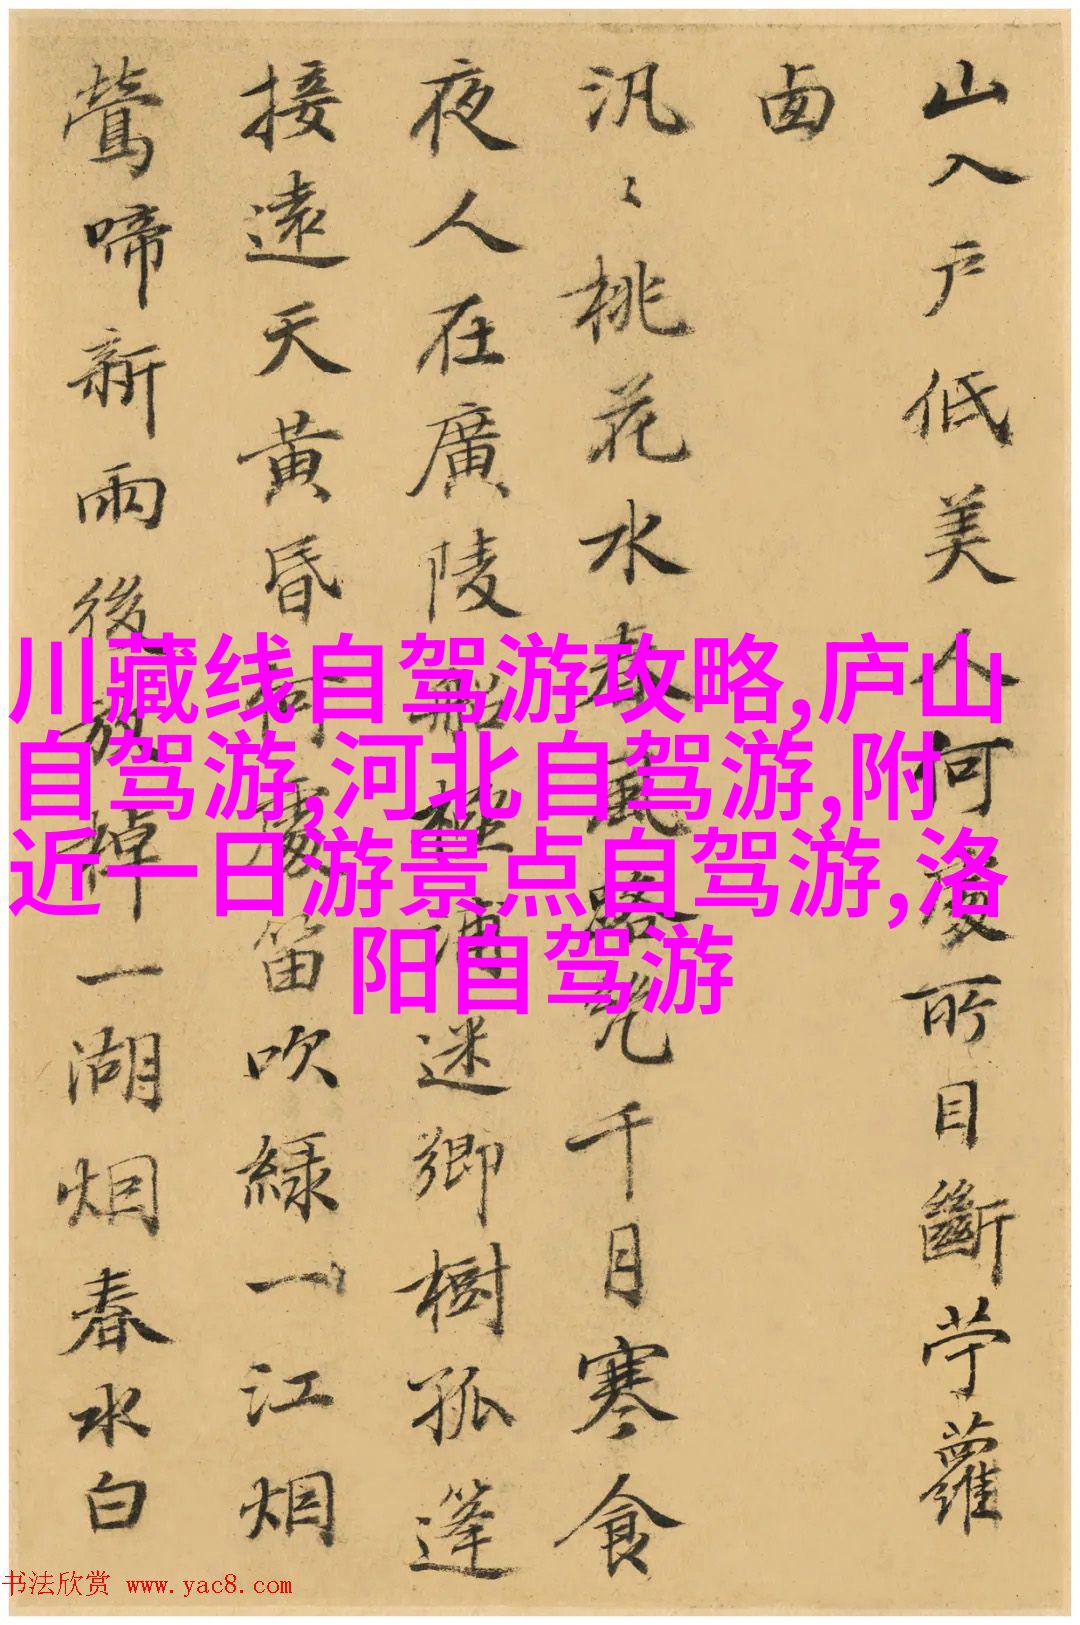 山入户低美人何處所目斷苧蘿
卤
汎〻桃花水春風路幾千月寒食
夜人在廣陵船極浦迷鄉樹孤篷
接遠天黃昏何處笛吹緑一江烟
鶯啼新雨後放棹一湖烟春水白
川藏线自驾游攻略,庐山
自驾游,河北自驾游,附
近一日游景点自驾游,洛
阳自驾游
书法欣赏 www.yac8.com